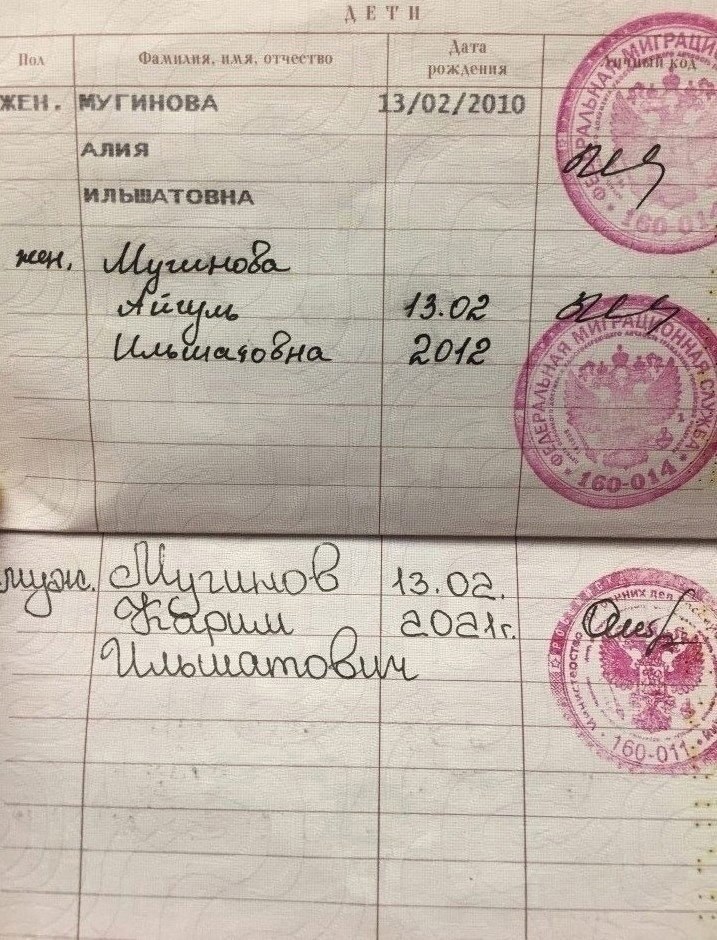 ДЕТИ
Пол Фамилия, имя, отчество Дата рождения Личный код
ЖЕН. МУГИНОВА 13/02/2010
АЛИЯ
ИЛЬШАТОВНА
жен. Мугинова
Айгуль 13.02
Ильшатовна 2012
ФЕДЕРАЛЬНАЯ МИГРАЦИОННАЯ СЛУЖБА
160-014
муж. Мугинов 13.02.
Карим 2021г.
Ильшатович
Министерство внутренних дел
160-011